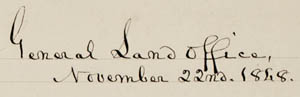 General Land Office,
November 22nd. 1848.